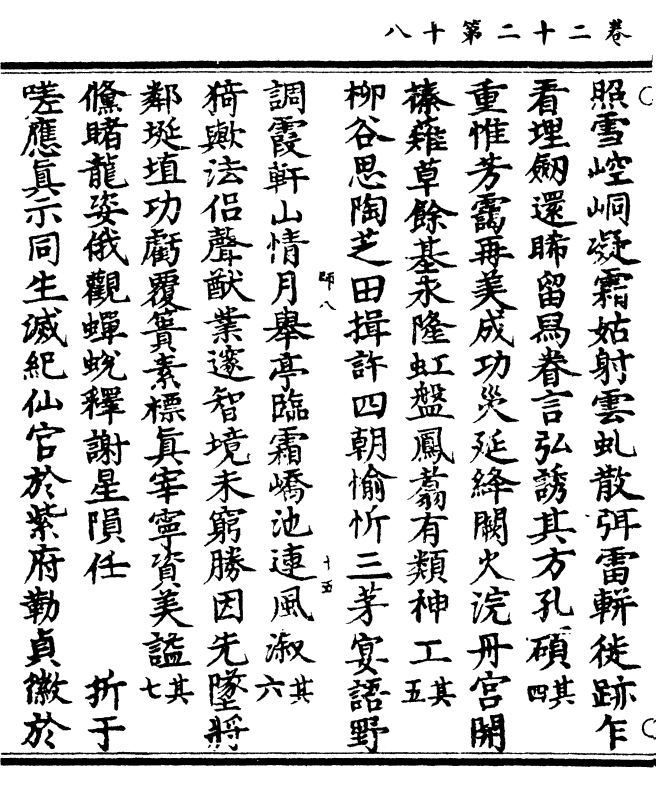 卷二十二第十八
照雪崆峒凝霜姑射雲虬散弭雷軿徙跡乍
看埋劒還睎留舄眷言弘誘其方孔碩其四
重惟芳靄再美成功災延絳闕火浣丹宮開
榛薙草餘基永隆虹盤鳳翥有類神工其五
柳谷思陶芝田揖許四朝愉忻三茅宴語野
調霞軒山情月舉亭臨霜嶠池連風溆其六
師八
十五
猗歟法侶聲猷業邃智境未窮勝因先墜將
鄰埏埴功虧覆簣素標真宰寧資美謚其七
儵睹龍姿俄觀蟬蛻釋謝星隕任 折于
嗟應真示同生滅紀仙官於紫府勒貞徽於